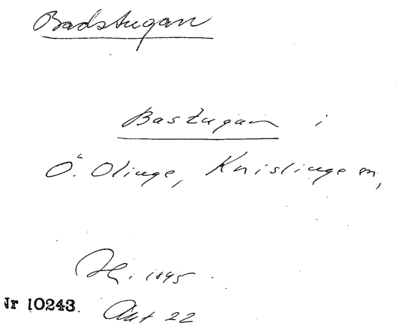 Badstugan
Bastugan i
Ö. Olinge, Knislinge sn,
1945.
Nr 10243. Akt 22